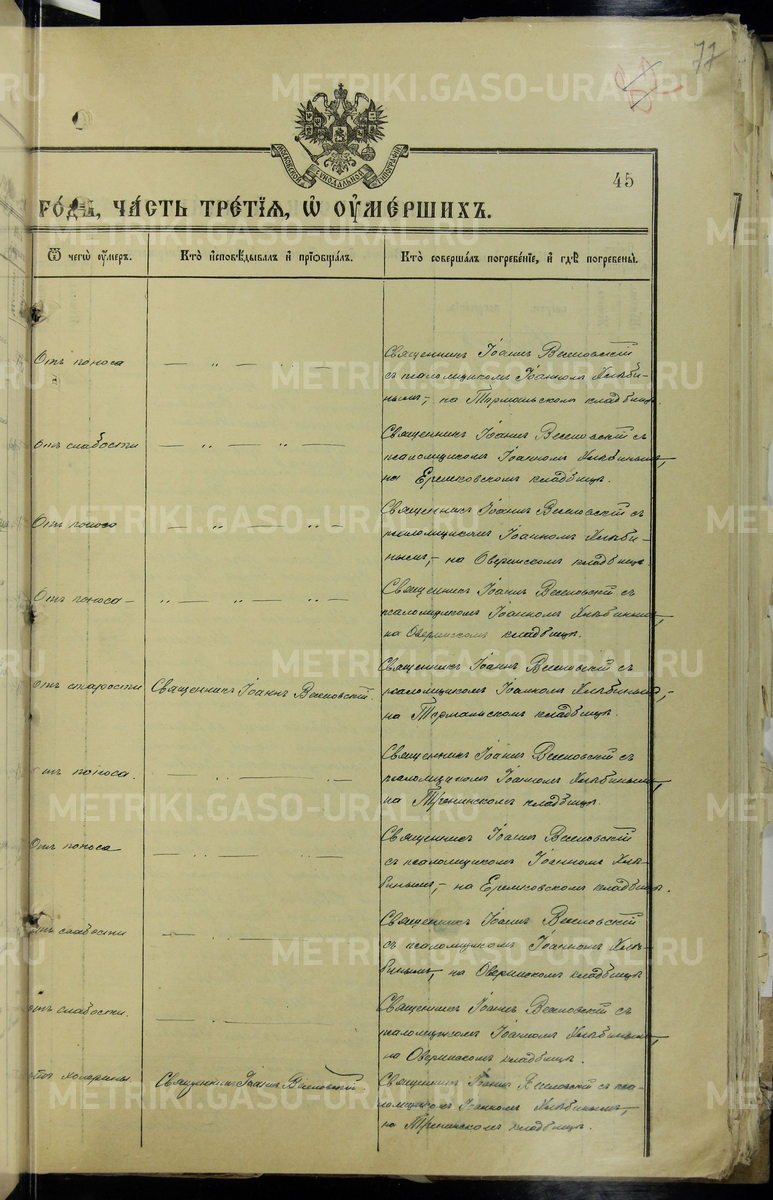 77
45
МОСКОВСКОЙ СѴНОДАЛЬНОЙ ТИПОГРАФІИ
ГОДЪ, ЧАСТЬ ТРЕТІЯ, Ѡ ОУМЕРШИХЪ.
Ѿ чегѡ оумеръ.
Кто исповѣдывалъ и пріѡбщалъ.
Кто совершалъ погребеніе, и гдѣ погребены.
Отъ поноса
Священникъ Іоаннъ Веселовскій
съ псаломщикомъ Іоанномъ Хлѣби-
нымъ, на Тормольскомъ кладбищѣ.
Отъ слабости
Священникъ Іоаннъ Веселовскій съ
псаломщикомъ Іоанномъ Хлѣбинымъ,
на Еремковскомъ кладбищѣ.
Отъ поноса
Священникъ Іоаннъ Веселовскій съ
псаломщикомъ Іоанномъ Хлѣби-
нымъ, на Оверинскомъ кладбищѣ.
Отъ поноса
Священникъ Іоаннъ Веселовскій съ
псаломщикомъ Іоанномъ Хлѣбинымъ,
на Оверинском кладбищѣ.
Отъ старости
Священникъ Іоаннъ Веселовскій.
Священникъ Іоаннъ Веселовскій съ
псаломщикомъ Іоанномъ Хлѣбинымъ,
на Тормольскомъ кладбищѣ.
Отъ поноса.
Священникъ Іоаннъ Веселовскій съ
псаломщикомъ Іоанномъ Хлѣбинымъ,
на Тренинскомъ кладбищѣ.
Отъ поноса
Священникъ Іоаннъ Веселовскій
съ псаломщикомъ Іоанномъ Хлѣ-
бинымъ, на Еремковскомъ кладбищѣ.
Отъ слабости
Священникъ Іоаннъ Веселовскій
съ псаломщикомъ Іоанномъ Хлѣ-
бинымъ, на Оверинскомъ кладбищѣ
Отъ слабости.
Священникъ Іоаннъ Веселовскій съ
псаломщикомъ Іоанномъ Хлѣбинымъ,
на Оверинскомъ кладбищѣ.
Отъ холерины.
Священникъ Іоаннъ Веселовскій
Священникъ Іоаннъ Веселовскій съ пса-
ломщикомъ Іоанномъ Хлѣбинымъ,
на Тренинскомъ кладбищѣ.
METRIKI.GASO-URAL.RU